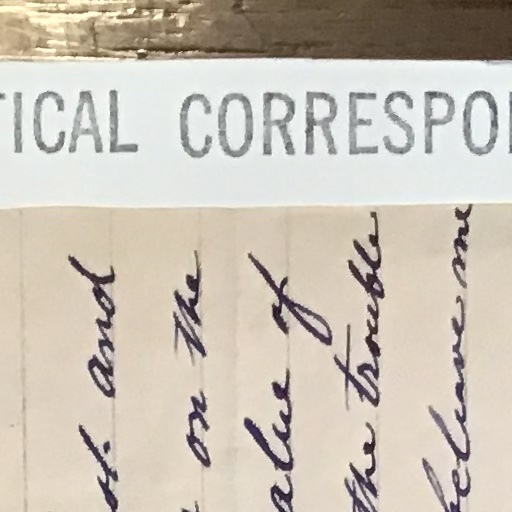 and
on the
alue of
the trouble
believe me
TICAL CORRESPO